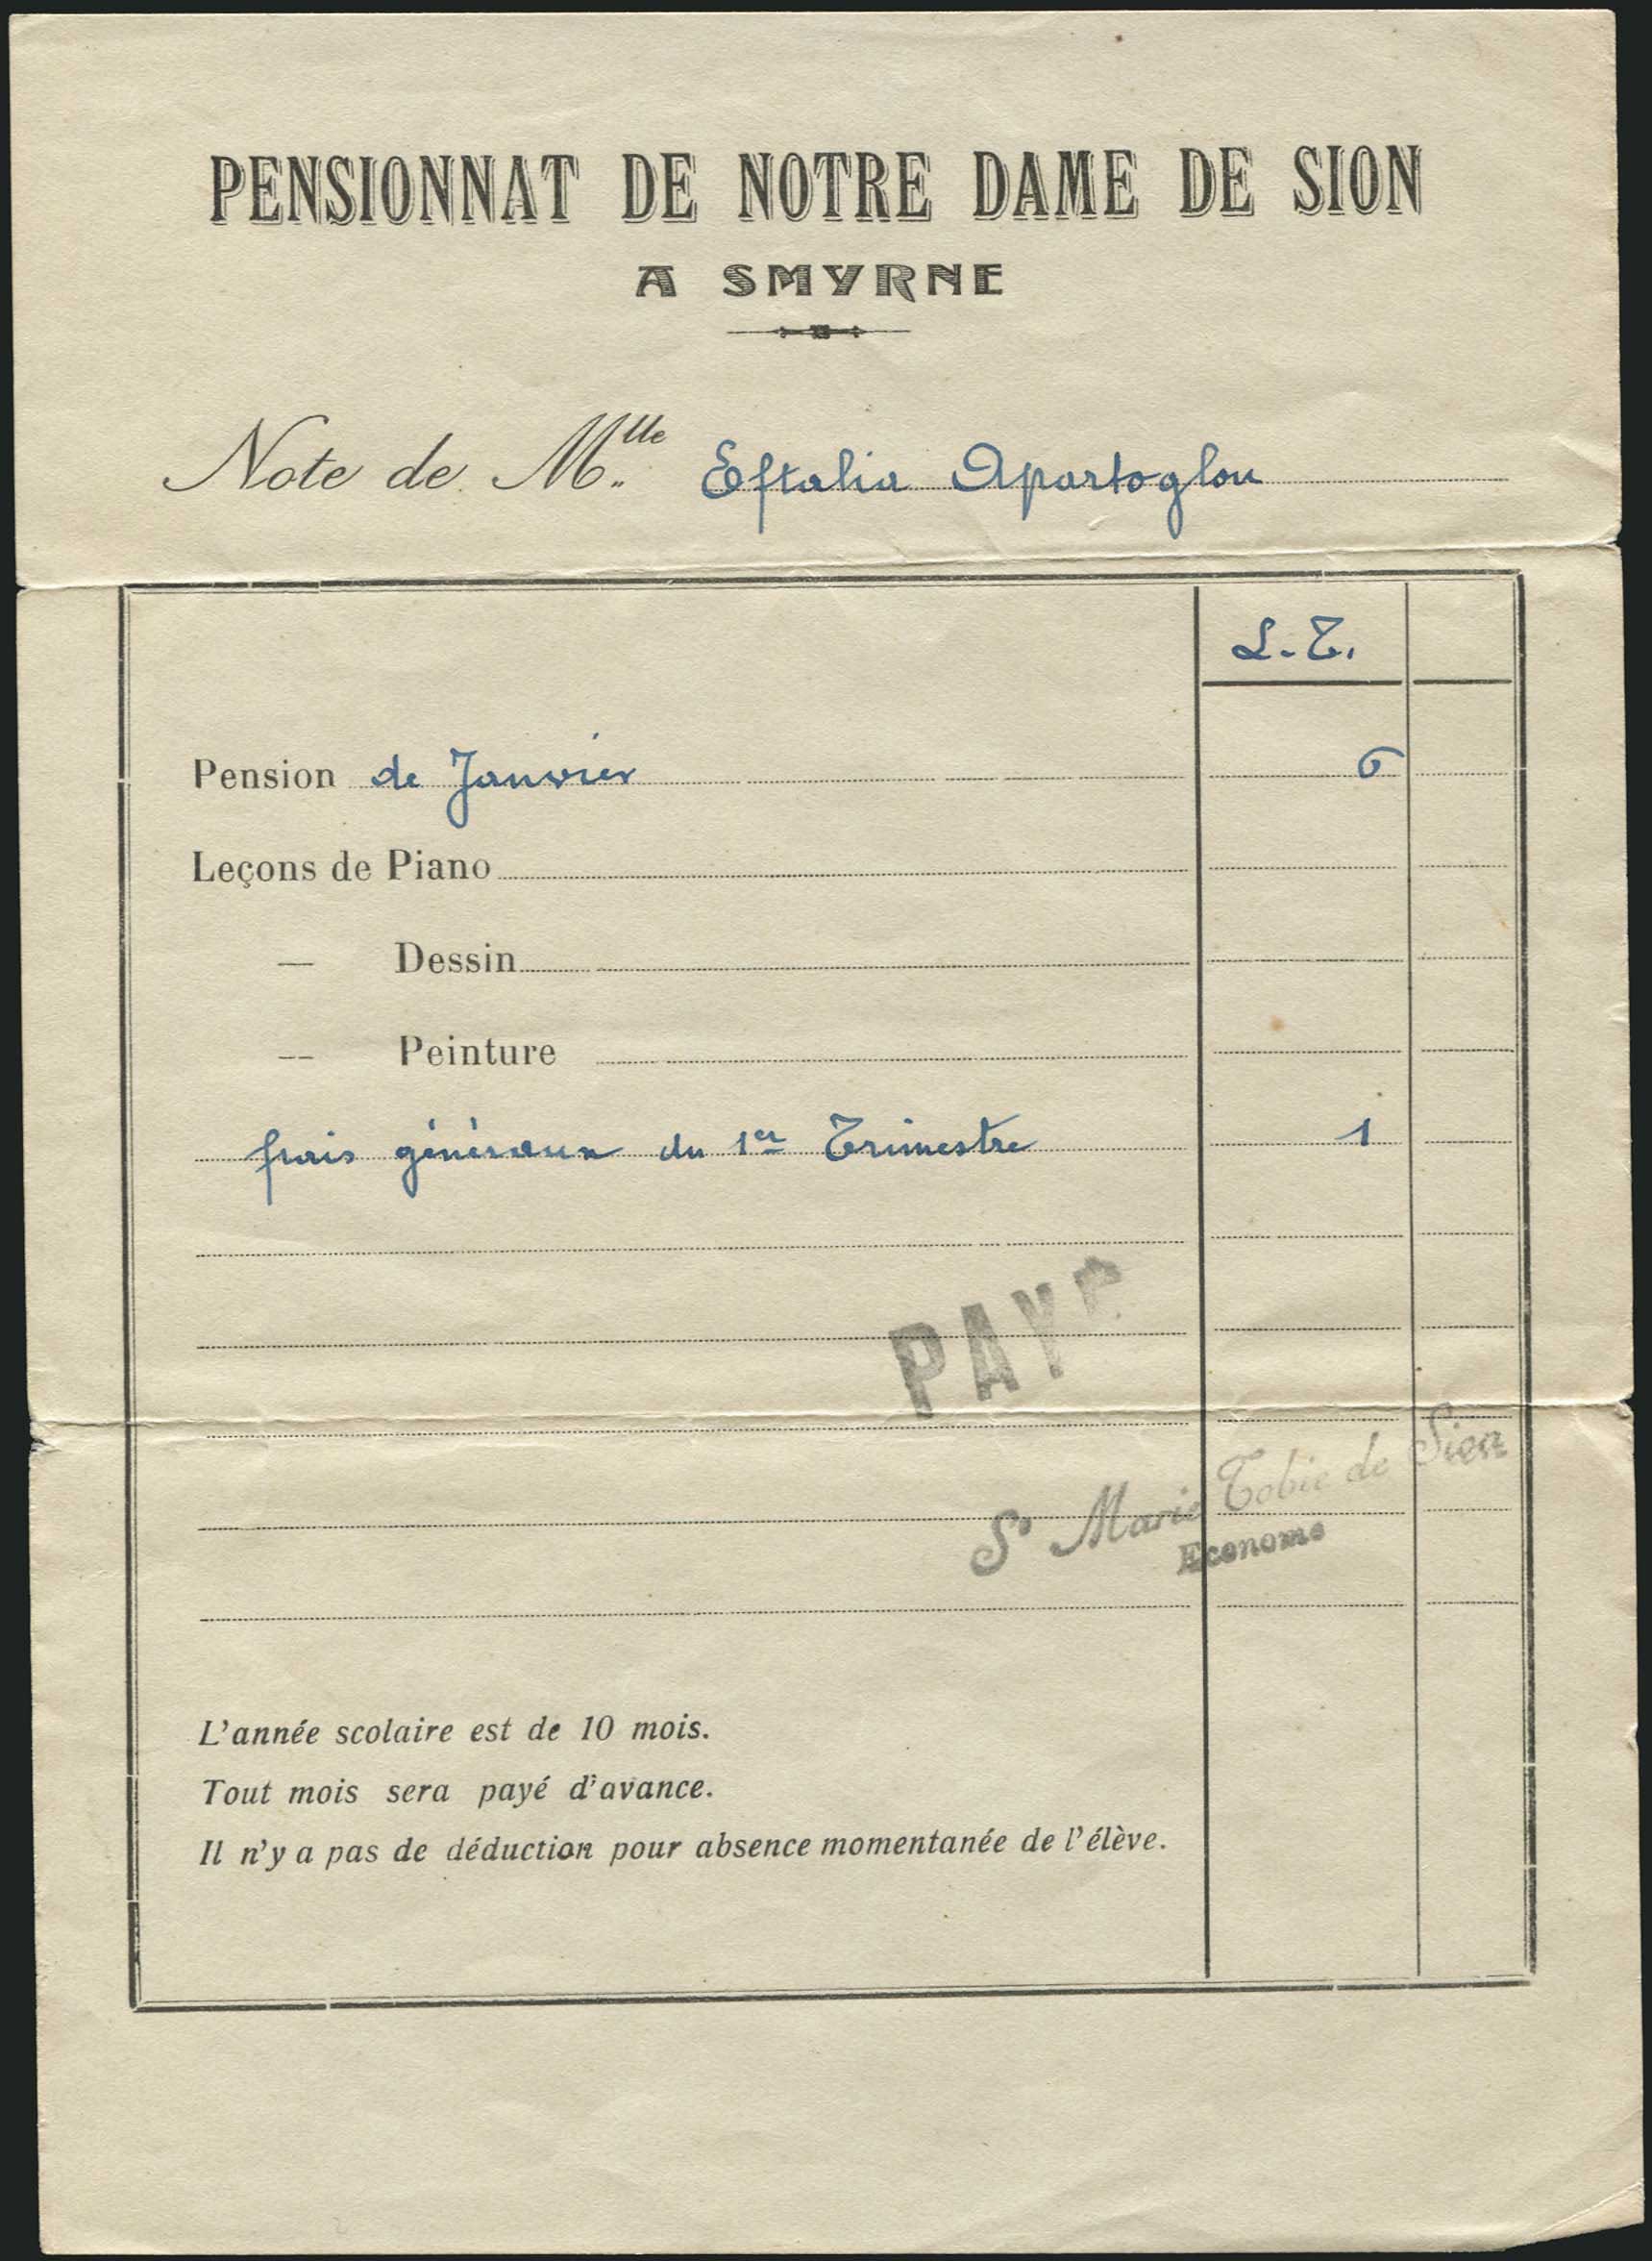 PENSIONNAT DE NOTRE DAME DE SION
A SMYRNE
Note de Mlle Eftalia Apartoglou
L.T.
Pension de Janvier 6
Leçons de Piano
— Dessin
— Peinture
frais généraux du 1er Trimestre 1
PAYÉ
Sr Marie Tobie de Sion
Econome
L'année scolaire est de 10 mois.
Tout mois sera payé d'avance.
Il n'y a pas de déduction pour absence momentanée de l'élève.